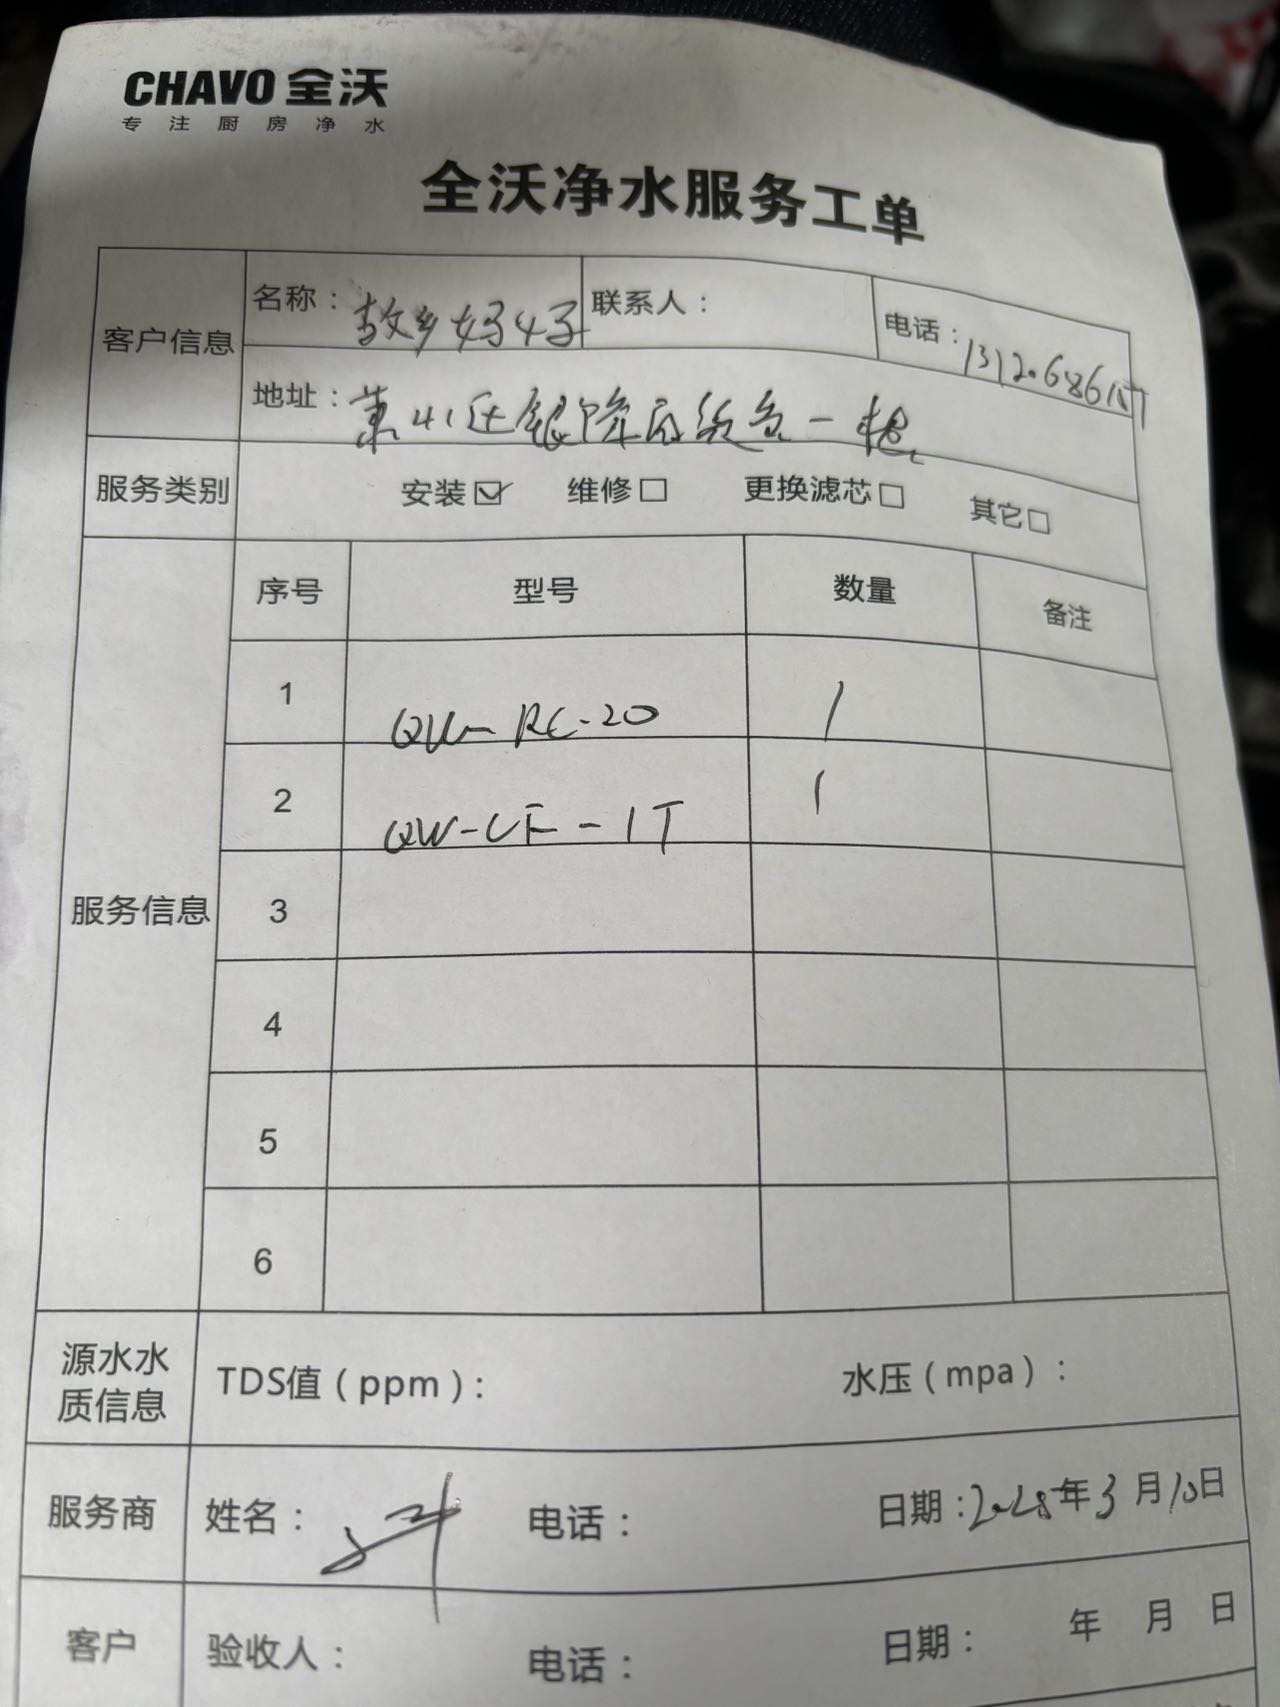 CHAVO 全沃
专注厨房净水
全沃净水服务工单
客户信息 名称：故乡妈好 联系人： 电话：
地址：萧山区银隆百货负一楼
服务类别 安装☑ 维修□ 更换滤芯□ 其它□
服务信息 序号 型号 数量 备注
1 QW-RC-20 1
2 QW-UF-1T 1
3
4
5
6
源水水质信息 TDS值（ppm）： 水压（mpa）：
服务商 姓名： 电话： 日期：2025年3月10日
客户 验收人： 电话： 日期： 年 月 日